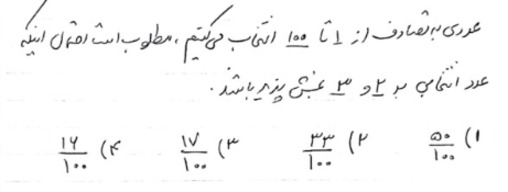 عددی به تصادف از ۱ تا ۱۰۰ انتخاب می‌کنیم، مطلوب است احتمال اینکه
عدد انتخابی بر ۲ و ۳ بخش پذیر باشد.
۱) ۵۰/۱۰۰ ۲) ۳۳/۱۰۰ ۳) ۱۷/۱۰۰ ۴) ۱۶/۱۰۰